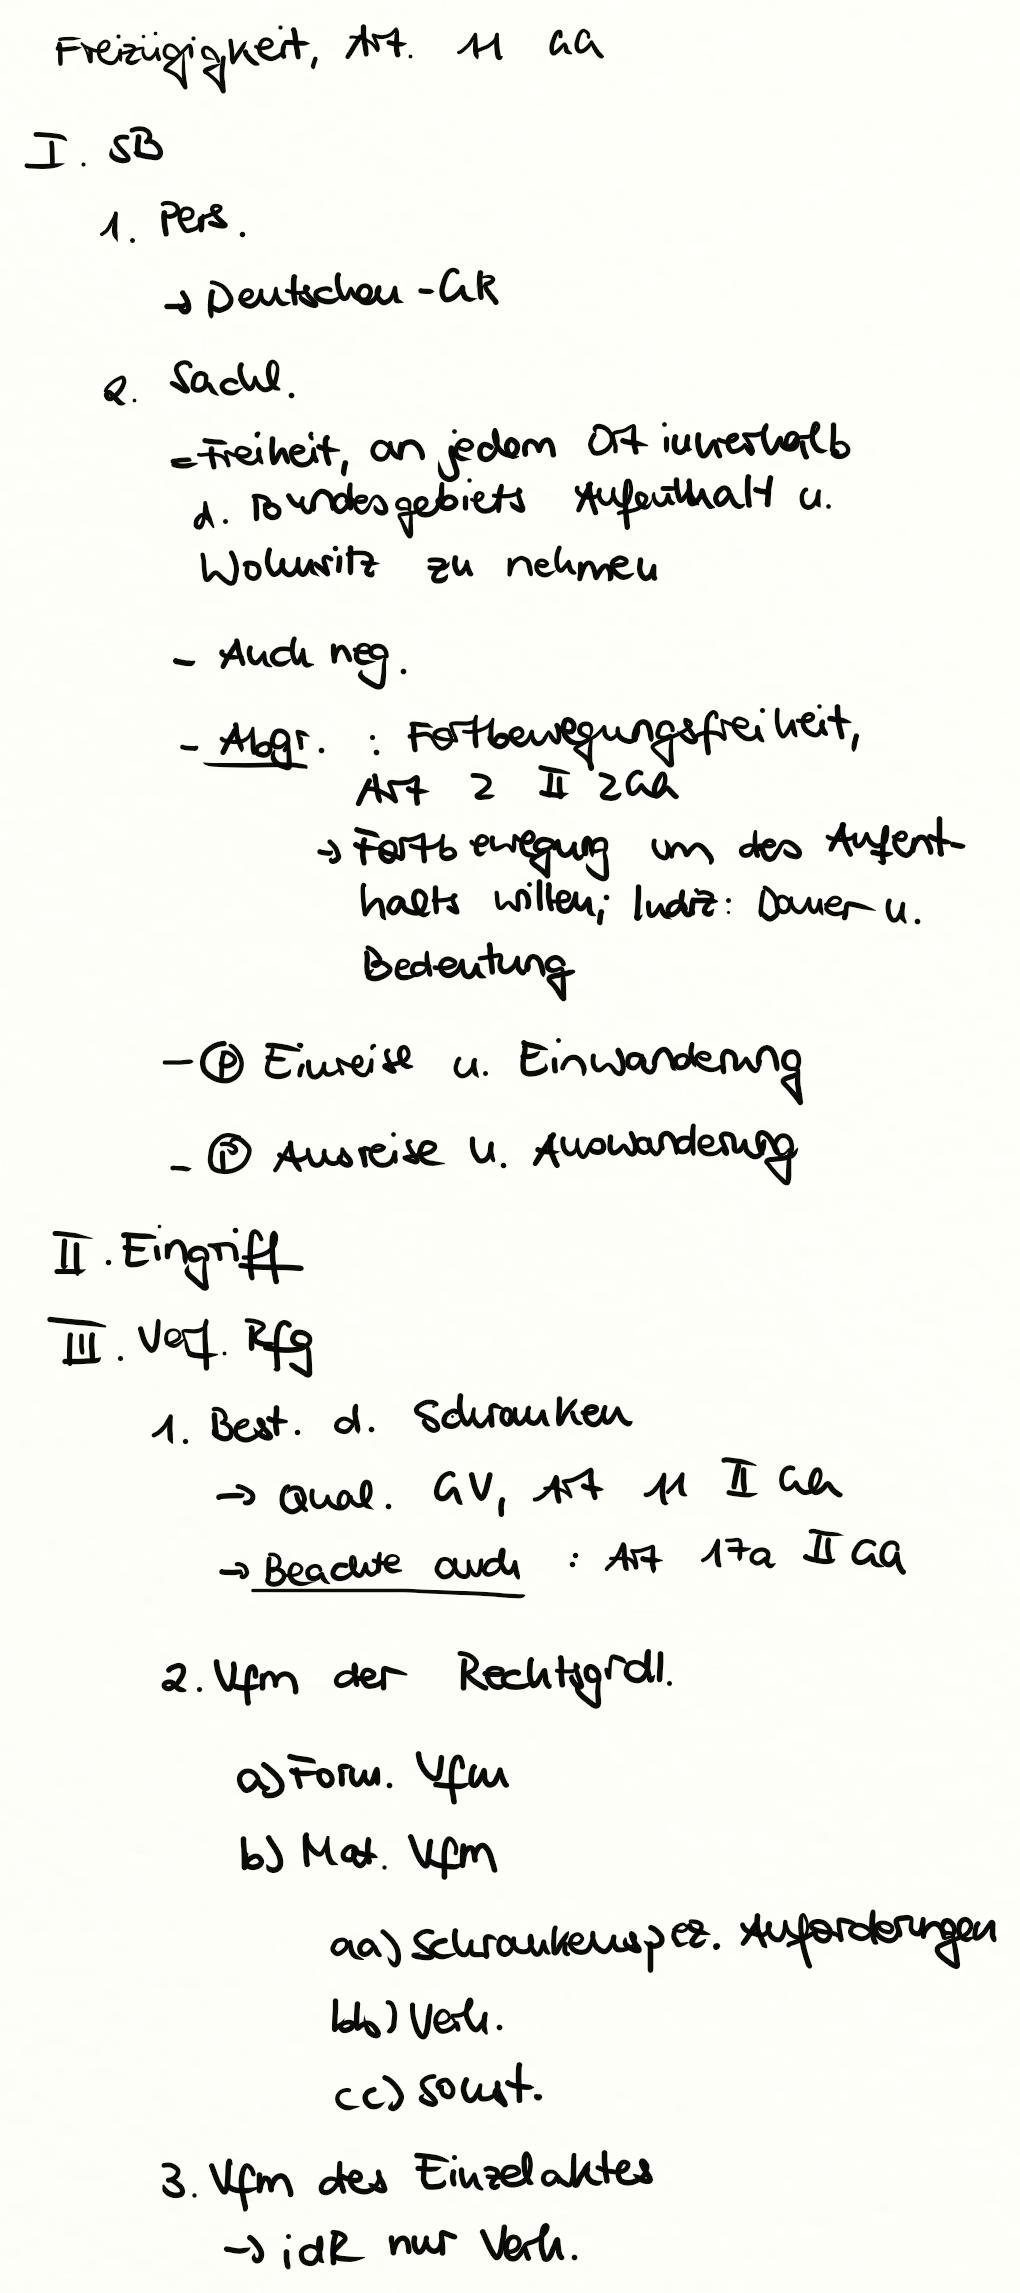 Freizügigkeit, Art. 11 GG
I. SB
1. Pers.
→ Deutschen-GR
2. Sachl.
= Freiheit, an jedem Ort innerhalb
d. Bundesgebiets Aufenthalt u.
Wohnsitz zu nehmen
- Auch neg.
- Abgr. : Fortbewegungsfreiheit,
Art 2 II 2 GG
→ Fortbewegung um des Aufent-
halts willen; Indiz: Dauer u.
Bedeutung
- Ⓟ Einreise u. Einwanderung
- Ⓟ Ausreise u. Auswanderung
II. Eingriff
III. Verf. Rfg
1. Best. d. Schranken
→ Qual. GV, Art 11 II GG
→ Beachte auch : Art 17a II GG
2. Vfm der Rechtsgrdl.
a) Form. Vfm
b) Mat. Vfm
aa) Schrankenspez. Anforderungen
bb) Verh.
cc) Sonst.
3. Vfm des Einzelaktes
→ idR nur Verh.